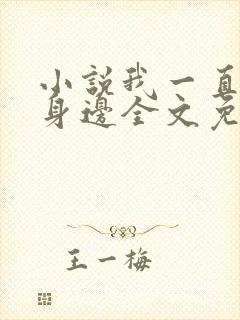 小說我一直
身邊全文免
王一梅